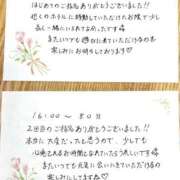 はじめてのご指名ありがとうございました!!
近くのホテルに移動していただけたお陰で少し
長く一緒にいれて良かったです
またいつでも遊びに来ていただけるのを
楽しみにお待ちしております♡
16:00〜80分
2回目のご指名ありがとうございました!!
本当に大変だったと思うので、少しでも
心癒されるお時間となれていたらうれしいです
またいつでも元気に会いに来ていただけるのを
楽しみにしております。♡